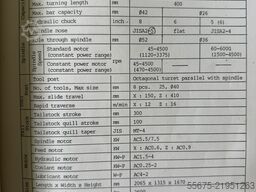 Max. turning length mm 400
Max. bar capacity mm Ø42 Ø26
Hydraulic chuck inch 8 6 5 (6)
Spindle nose JISA2- flat JISA2-4
Hole through spindle mm Ø52 Ø36
Standard motor 45-4500 60-6000
(constant power range) (1120-3375) (1500-4500)
Option motor rpm 45-4500
(constant power range) (470-4500)
Tool post Octagonal turret parallel with spindle
No. of tools, Max size 8 pcs. 25, Ø40
Max. slide travel mm X : 150, Z : 410
Rapid traverse m/min X : 12 Z : 16
Tailstock stroke mm 300
Tailstock quill stroke mm 100
Tailstock quill taper JIS MT-4
Spindle motor KW AC5.5/7.5
Feed motor KW X : AC0.6, Z : AC0.9
Hydraulic motor KW-P AC1.5-4
Coolant motor KW-P AC0.25-2
Lubricant motor W-P AC4-2
Length x Width x Height mm 2065 x 1315 x 1670
55675-21951263